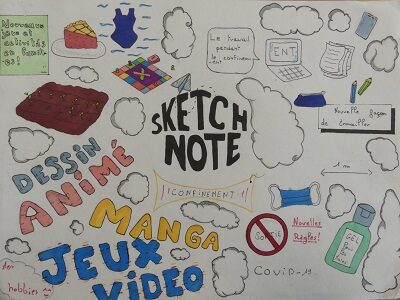 Nouveaux
jeux et
activités
en famil-
les!
SKETCH
NOTE
Le travail
pendant
le confinement
ENT
Nouvelle façon
de travailler
DESSIN
ANIMÉ
MANGA
JEUX
VIDEO
! CONFINEMENT !
1 m
SORTIE
Nouvelles
Règles!
GEL
Covid-19
hobbies